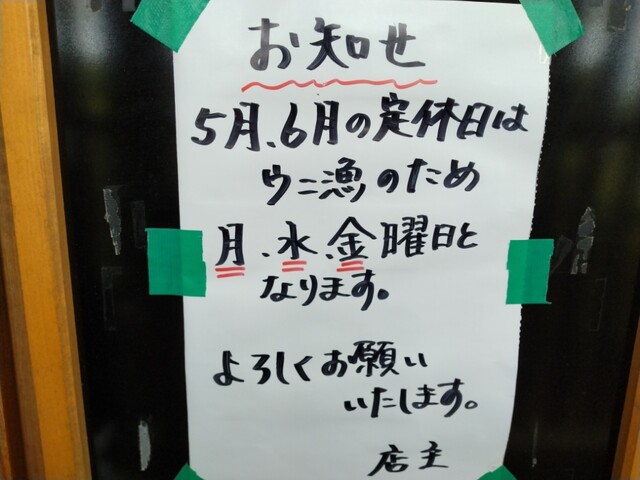 お知せ
5月、6月の定休日は
ウニ漁のため
月、水、金曜日と
なります。
よろしくお願い
いたします。
店主